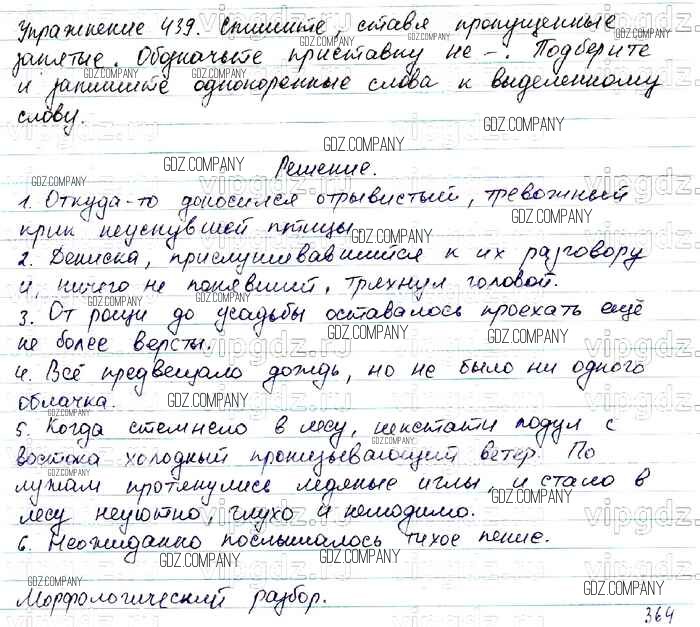 Упражнение 439. Спишите, ставя пропущенные
запятые. Обозначьте приставку не-. Подберите
и запишите однокоренные слова к выделенному
слову.
Решение.
1. Откуда-то доносился отрывистый, тревожный
крик неуснувшей птицы.
2. Дениска, прислушивавшийся к их разговору
и, ничего не понявший, тряхнул головой.
3. От рощи до усадьбы оставалось проехать ещё
не более версты.
4. Всё предвещало дождь, но не было ни одного
облачка.
5. Когда стемнело в лесу, некстати подул с
востока холодный пронизывающий ветер. По
лужам протянулись ледяные иглы, и стало в
лесу неуютно, глухо и нелюдимо.
6. Неожиданно послышалось тихое пение.
Морфологический разбор.
364
GDZ.COMPANY
vipgdz.ru